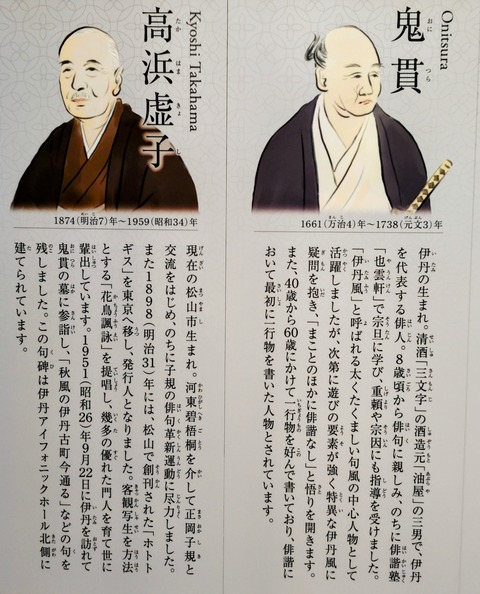 Onitsura
鬼貫
おに つら
1661(万治4)年～1738(元文3)年
伊丹の生まれ。清酒「三文字」の酒造元「油屋」の三男で、伊丹
を代表する俳人。8歳頃から俳句に親しみ、のちに俳諧塾
「也雲軒」で宗旦に学び、重頼や宗因にも指導を受けました。
「伊丹風」と呼ばれる太くたくましい句風の中心人物として
活躍しましたが、次第に遊びの要素が強く特異な伊丹風に
疑問を抱き、「まことのほかに俳諧なし」と悟りを開きます。
また、40歳から60歳にかけて一行物を好んで書いており、俳諧に
おいて最初に一行物を書いた人物とされています。
Kyoshi Takahama
高浜虚子
たか はま きょ し
1874(明治7)年～1959(昭和34)年
現在の松山市生まれ。河東碧梧桐を介して正岡子規と
交流をはじめ、のちに子規の俳句革新運動に尽力しました。
また1898(明治31)年には、松山で創刊された「ホトト
ギス」を東京へ移し、発行人となりました。客観写生を方法
とする「花鳥諷詠」を提唱し、幾多の優れた門人を育て世に
輩出しています。1951(昭和26)年9月22日に伊丹を訪れて
鬼貫の墓に参詣し、「秋風の伊丹古町今通る」などの句を
残しました。この句碑は伊丹アイフォニックホール北側に
建てられています。